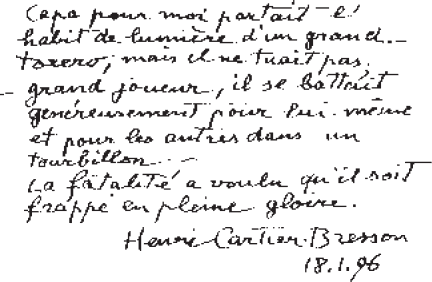 Capa pour moi portait l'
habit de lumière d'un grand
torero, mais il ne tuait pas.
grand joueur, il se battait
généreusement pour lui-même
et pour les autres dans un
tourbillon...
La fatalité a voulu qu'il soit
frappé en pleine gloire.
Henri Cartier-Bresson
18.1.96